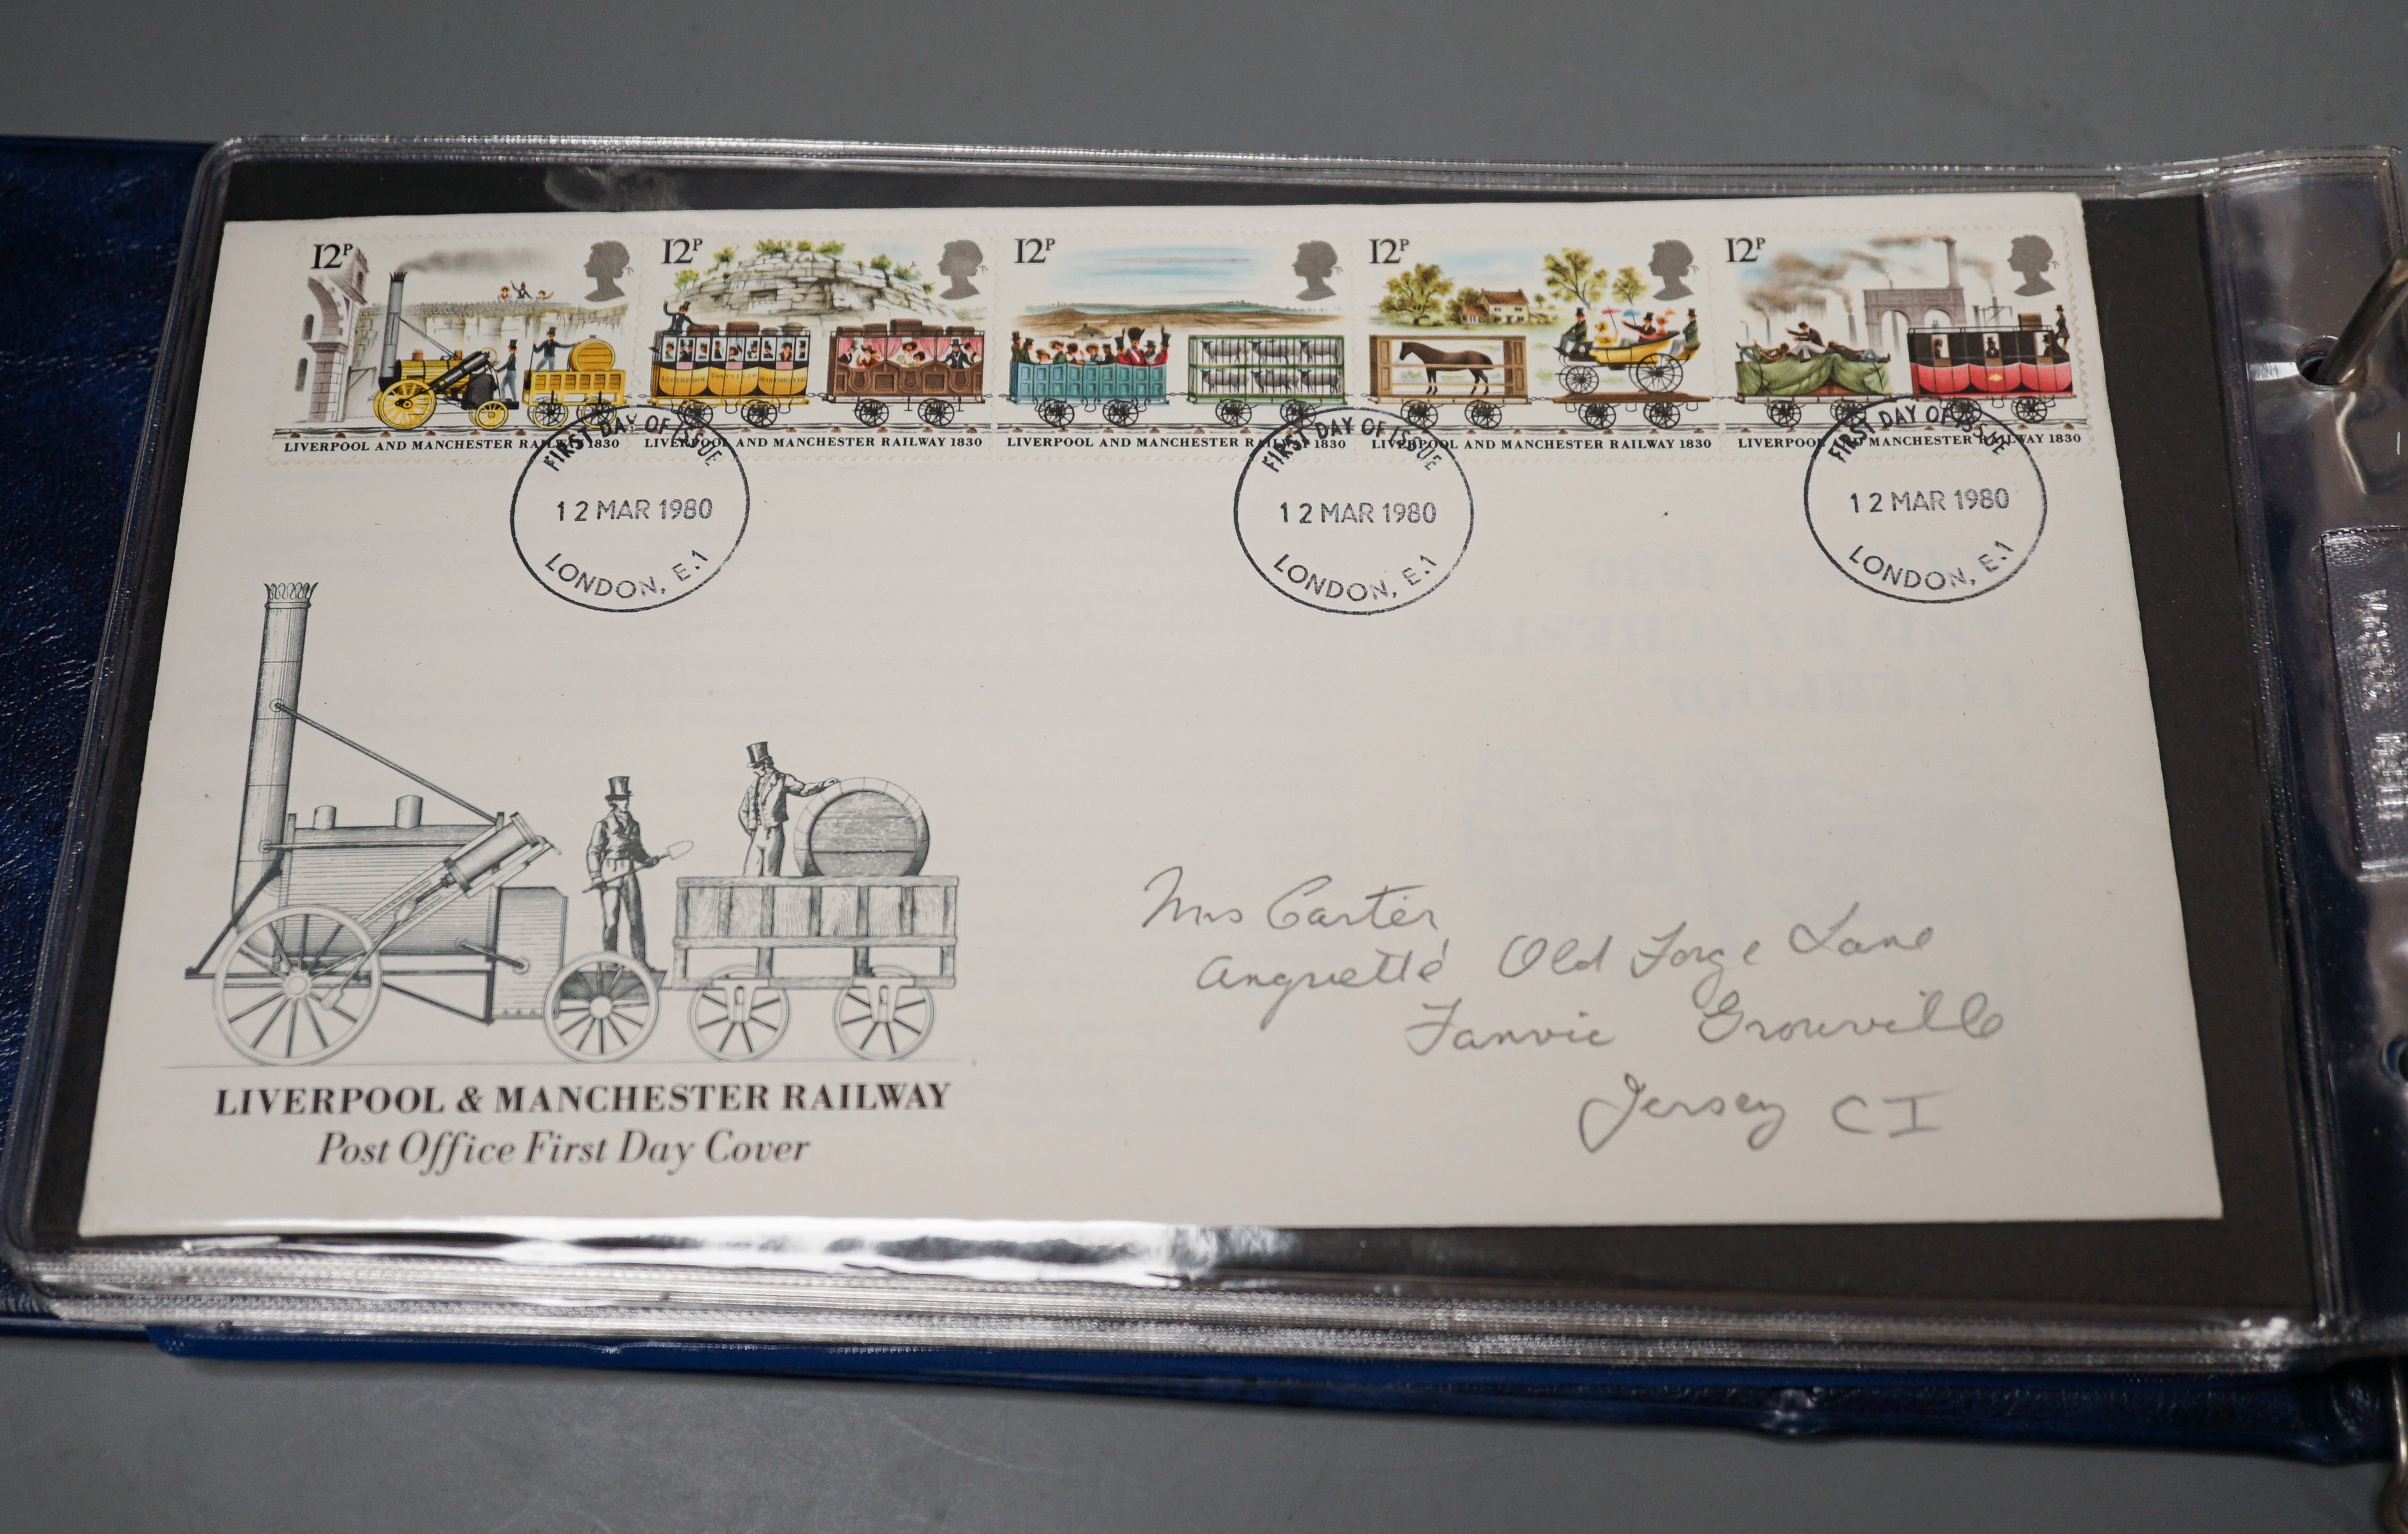 12P
12P
12P
12P
12P
LIVERPOOL AND MANCHESTER RAILWAY 1830
LIVERPOOL AND MANCHESTER RAILWAY 1830
LIVERPOOL AND MANCHESTER RAILWAY 1830
LIVERPOOL AND MANCHESTER RAILWAY 1830
LIVERPOOL AND MANCHESTER RAILWAY 1830
FIRST DAY OF ISSUE
12 MAR 1980
LONDON, E.1
FIRST DAY OF ISSUE
12 MAR 1980
LONDON, E.1
FIRST DAY OF ISSUE
12 MAR 1980
LONDON, E.1
Mrs Carter
Old Forge Lane
Fauvic Grouville
Jersey CI
LIVERPOOL & MANCHESTER RAILWAY
Post Office First Day Cover